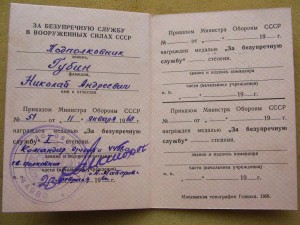 ЗА БЕЗУПРЕЧНУЮ СЛУЖБУ
В ВООРУЖЕННЫХ СИЛАХ СССР
Подполковник
звание,
Губин
фамилия,
Николай Андреевич
имя и отчество
Приказом Министра Обороны СССР
№ 51 от „11“ января 19 г.
награжден медалью „За безупречную
службу“ I степени.
Командир
полковник
Приказом Министра Обороны СССР
№ от „ “ 19 г.
награжден медалью „За безупречную
службу“ степени.
звание и подпись командира
части (начальника учреждения)
„ “ 19 г.
Приказом Министра Обороны СССР
№ от „ “ 19 г.
награжден медалью „За безупречную
службу“ степени.
звание и подпись командира
части (начальника учреждения)
„ “ 19 г.
Московская типография Гознака.